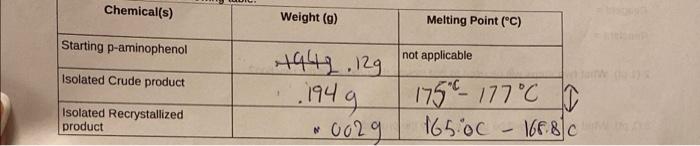 Chemical(s) Weight (g) Melting Point (°C)
Starting p-aminophenol .12g not applicable
Isolated Crude product .194 g 175°C - 177°C
Isolated Recrystallized product .002g 165.0C - 168.8C